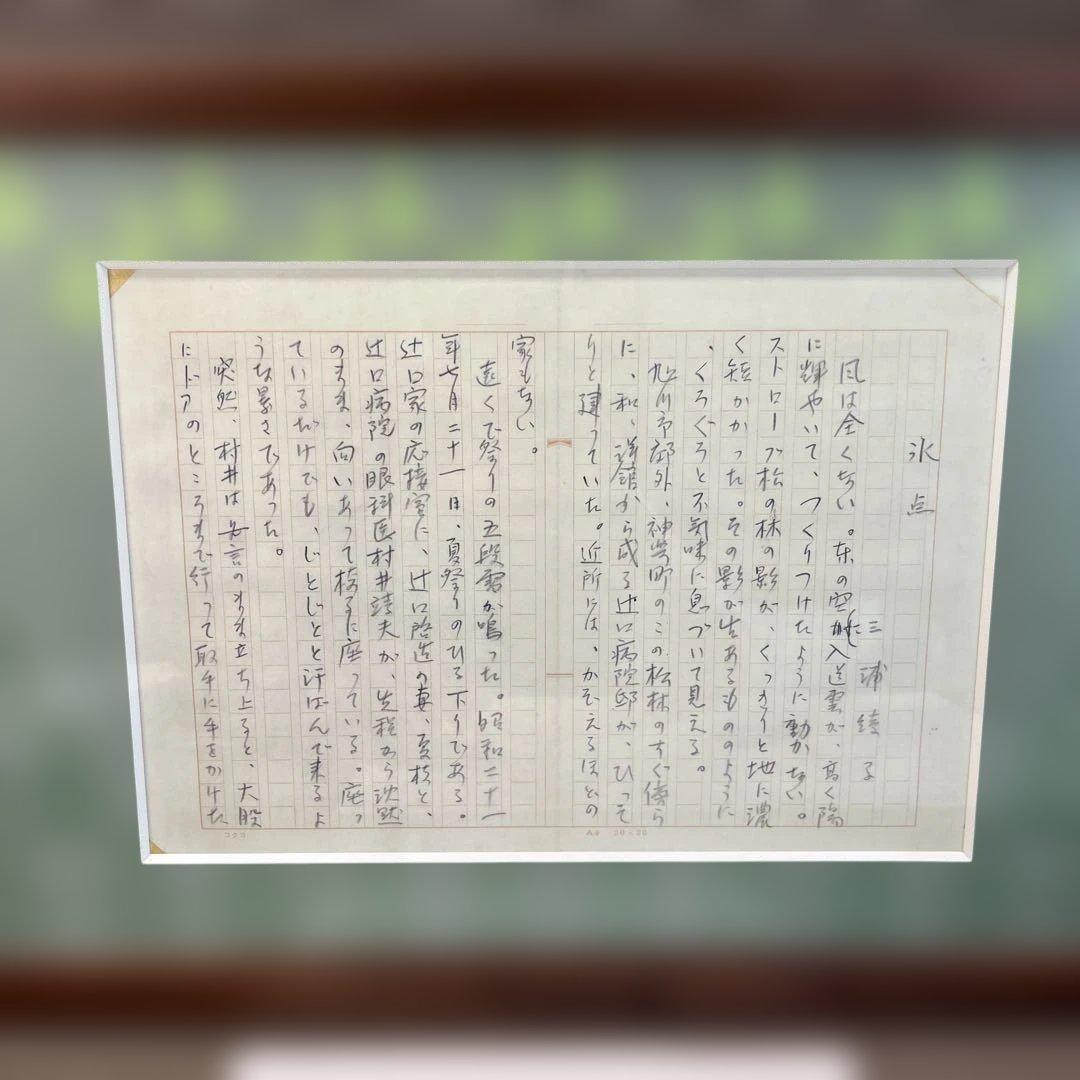 氷点
三浦綾子
風は全くない。東の空に入道雲が、高く陽
に輝やいて、つくりつけたように動かない。
ストローブ松の林の影が、くっきりと地に濃
く短かかった。その影が生あるもののように
、くろぐろと不気味に息づいて見える。
旭川市郊外、神楽町のこの松林のすぐ傍ら
に、和、洋館から成る辻口病院邸が、ひっそ
りと建っていた。近所には、かぞえるほどの
家もない。
遠くで祭りの五段雷が鳴った。昭和二十一
年七月二十一日、夏祭りのひる下りである。
辻口家の応接室に、辻口啓造の妻、夏枝と、
辻口病院の眼科医村井靖夫が、先程から沈黙
のまま、向いあって椅子に座っている。座っ
ているだけでも、じとじとと汗ばんで来るよ
うな暑さであった。
突然、村井は無言のまま立ち上ると、大股
にドアのところまで行って取手に手をかけた
コクヨ
20×20